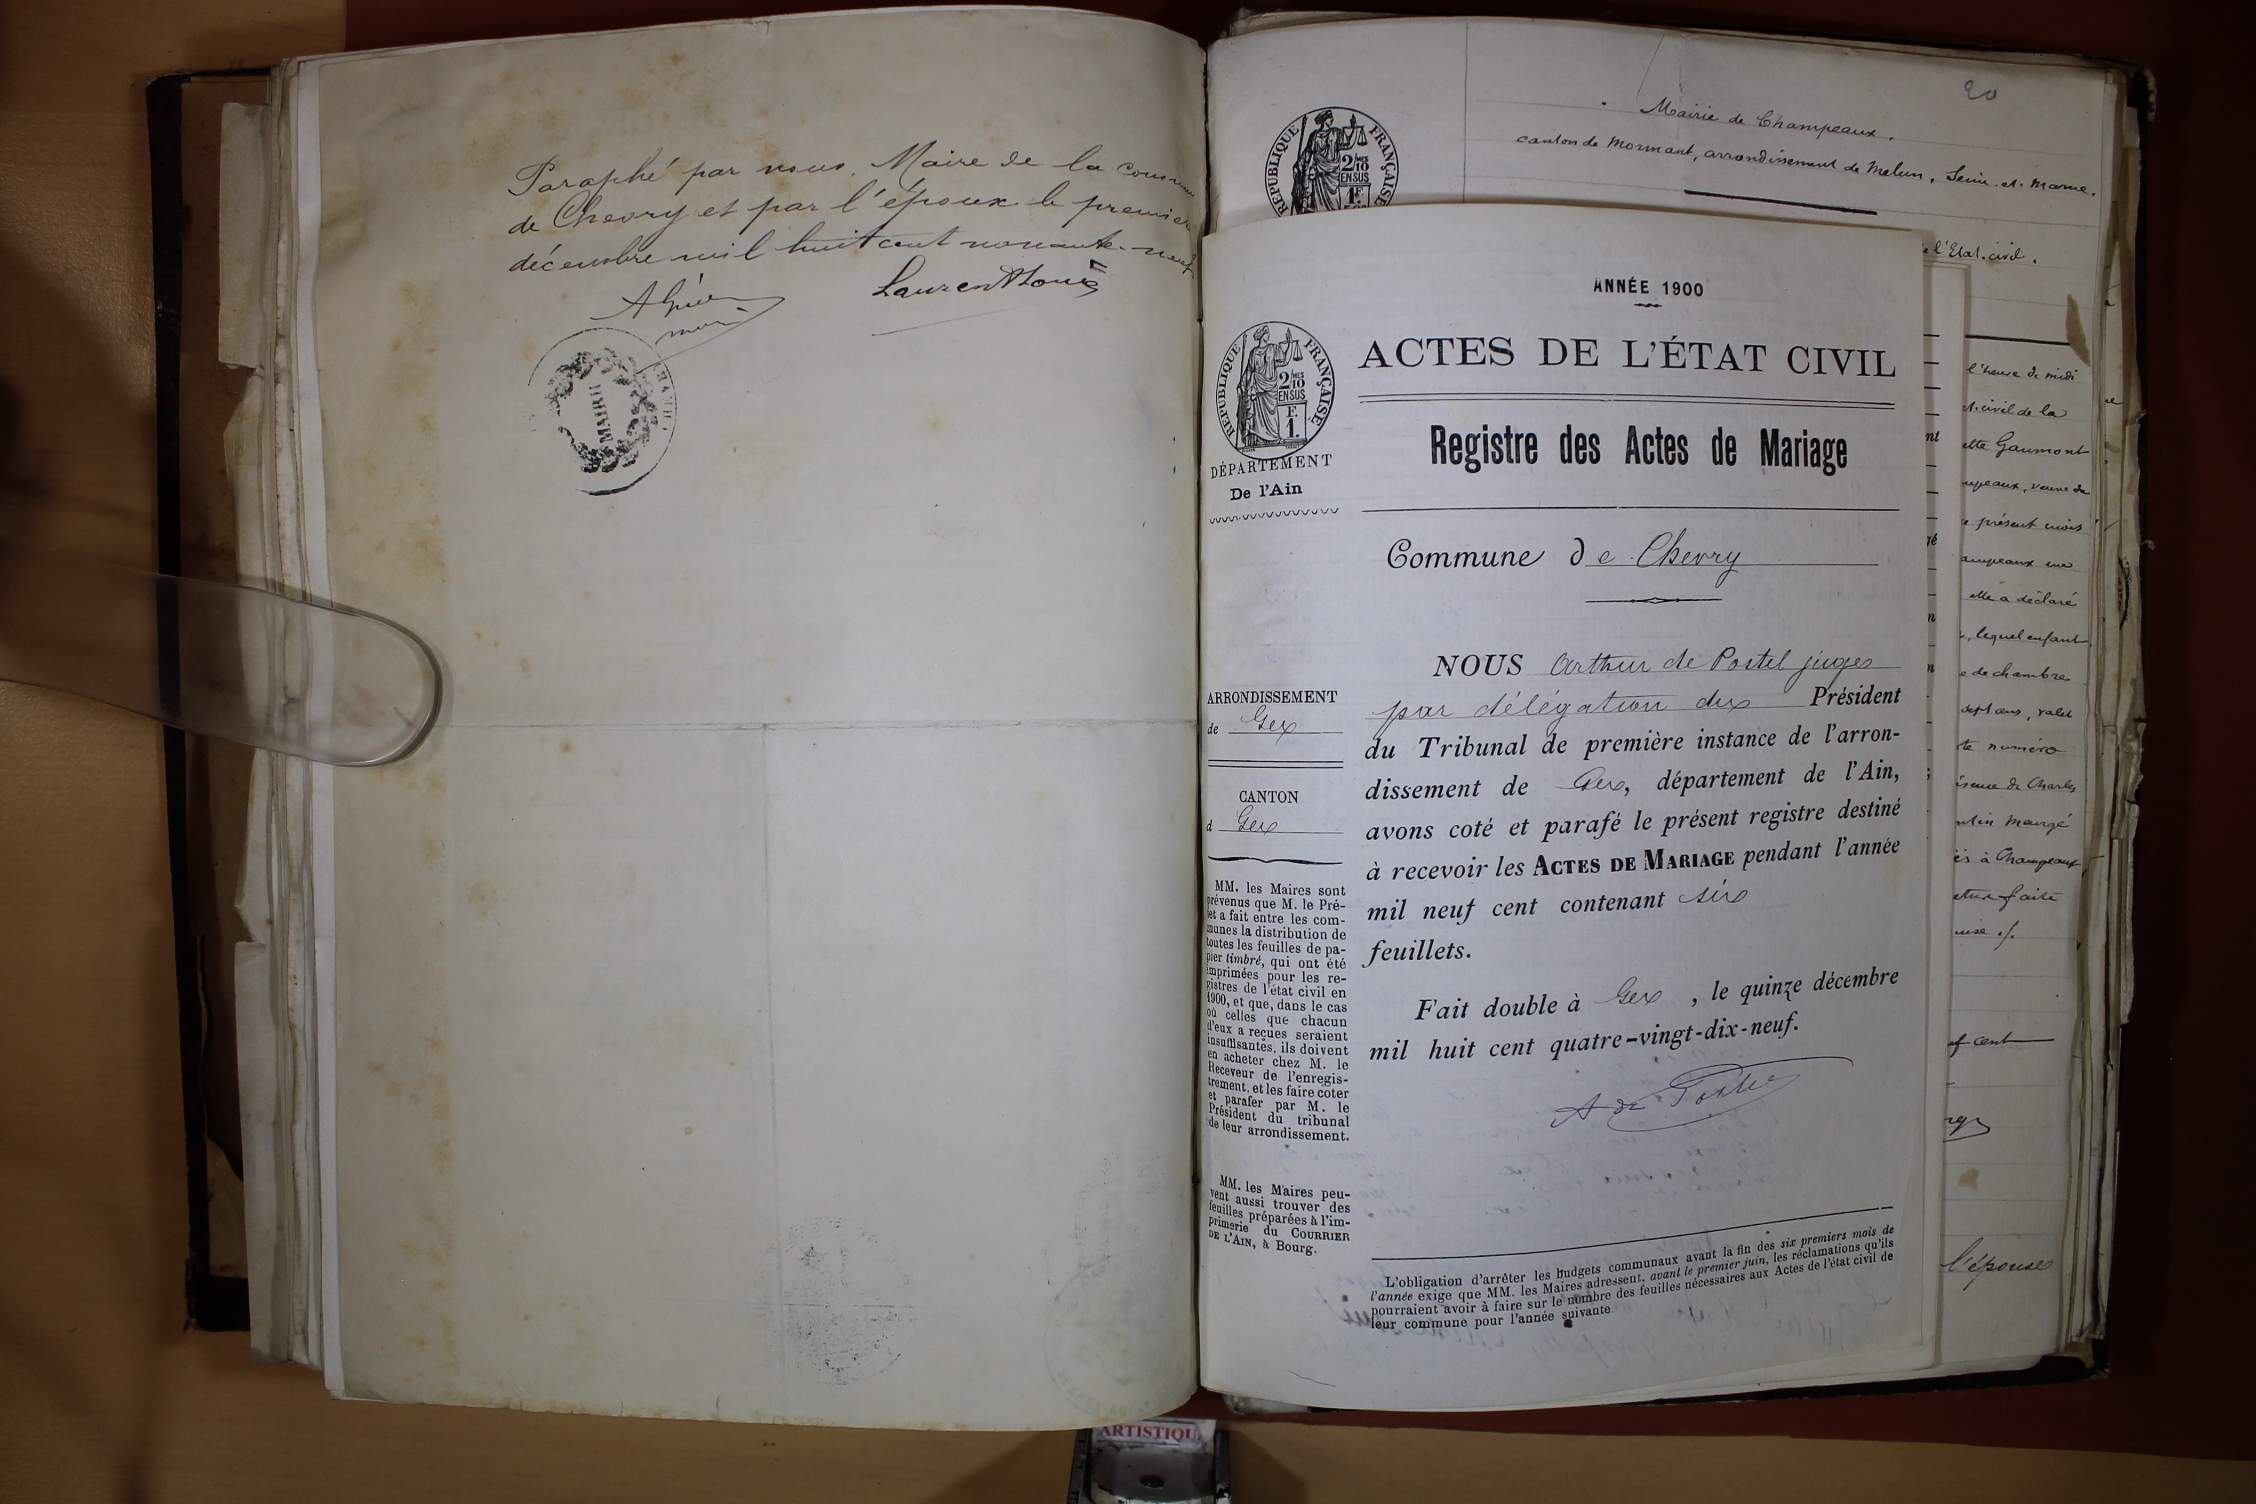 Paraphé par nous, Maire de la
de Chevry et par l'époux le premier
décembre mil huit cent nonante-neuf
Laurent Louis
MAIRIE
20
Mairie de Champeaux.
canton de Mormant, arrondissement de Melun, Seine-et-Marne.
RÉPUBLIQUE FRANÇAISE
2/10 MES
EN SUS
1F.
l'Etat-civil.
l'heure de midi
civil de la
Gaumont
veuve de
présent mois
elle a déclaré
lequel enfant
de chambre
sept ans, valet
numéro
de Charles
à Champeaux
faite
cent
l'épouse
ANNÉE 1900
ACTES DE L'ÉTAT CIVIL
RÉPUBLIQUE FRANÇAISE
2/10 MES
EN SUS
F.
1.
Registre des Actes de Mariage
DÉPARTEMENT
De l'Ain
Commune de Chevry
ARRONDISSEMENT
de Gex
CANTON
d Gex
MM. les Maires sont
prévenus que M. le Pré-
fet a fait entre les com-
munes la distribution de
toutes les feuilles de pa-
pier timbré, qui ont été
imprimées pour les re-
gistres de l'état civil en
1900, et que, dans le cas
où celles que chacun
d'eux a reçues seraient
insuffisantes, ils doivent
en acheter chez M. le
Receveur de l'enregis-
trement, et les faire coter
et parafer par M. le
Président du tribunal
de leur arrondissement.
MM. les Maires peu-
vent aussi trouver des
feuilles préparées à l'im-
primerie du COURRIER
DE L'AIN, à Bourg.
NOUS Arthur de Postel juge
par délégation du Président
du Tribunal de première instance de l'arron-
dissement de Gex, département de l'Ain,
avons coté et parafé le présent registre destiné
à recevoir les ACTES DE MARIAGE pendant l'année
mil neuf cent contenant six
feuillets.
Fait double à Gex, le quinze décembre
mil huit cent quatre-vingt-dix-neuf.
A de Postel
L'obligation d'arrêter les budgets communaux avant la fin des six premiers mois de
l'année exige que MM. les Maires adressent, avant le premier juin, les réclamations qu'ils
pourraient avoir à faire sur le nombre des feuilles nécessaires aux Actes de l'état civil de
leur commune pour l'année suivante.
ARTISTIQU